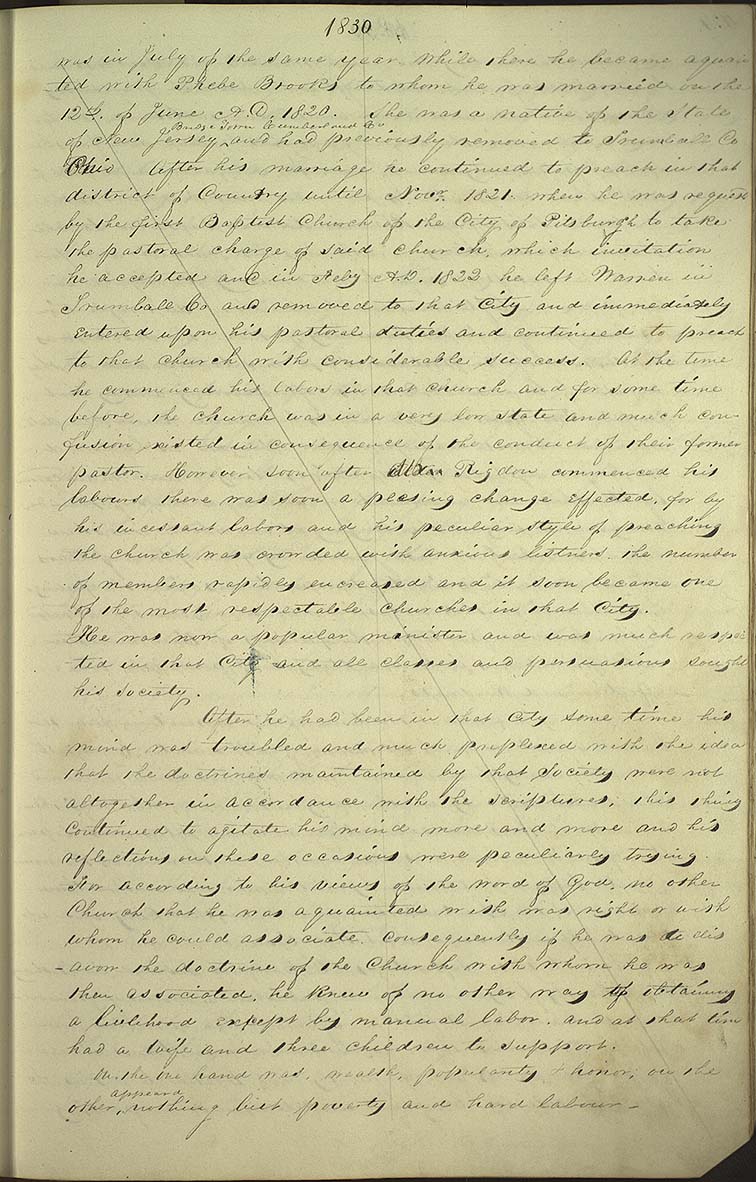 1830
was in July of the same year. While there he became aquain
-ted with Phebe Brooks to whom he was married on the
12th. of June A.D. 1820. She was a native of the State
Bridge Town Cumberland Co
of New Jersey, and had previously removed to Trumball Co
Ohio After his marriage he continued to preach in that
district of Country until Novr. 1821. when he was request
by the first Baptist Church of the City of Pitsburgh to take
the pastoral charge of said church, which invitation
he accepted and in Feby A.D. 1822 he left Warren in
Trumball Co and removed to that City and immediately
entered upon his pastoral duties and continued to preach
to that church with considerable success. At the time
he commenced his labors in that church and for some time
before, the church was in a very low state and much con-
fusion existed in consequence of the conduct of their former
pastor. However soon after Elder Rigdon commenced his
labours there was soon a pleesing change effected, for by
his incessant labors and his peculiar style of preaching
the church was crowded with anxious listners. the number
of members rapidly encreased and it soon became one
of the most respectable churches in that City.
He was now a popular minister and was much respec
ted in that City and all classes and persuasions sought
his society.
After he had been in that City some time his
mind was troubled and much perplexed with the idea
that the doctrines maintained by that Society were not
altogether in accordance with the scriptures; this thing
continued to agitate his mind more and more and his
reflections on these occasions were peculiarly trying.
For according to his views of the word of God, no other
Church that he was aquainted with was right or with
whom he could associate. consequently if he was to dis
-avow the doctrine of the Church with whom he was
then associated, he knew of no other way of obtaining
a livelihood except by manual labor. and at that time
had a wife and three children to support.
On the one hand was, wealth, popularity & honor; on the
appeard
other, nothing but poverty and hard labour-